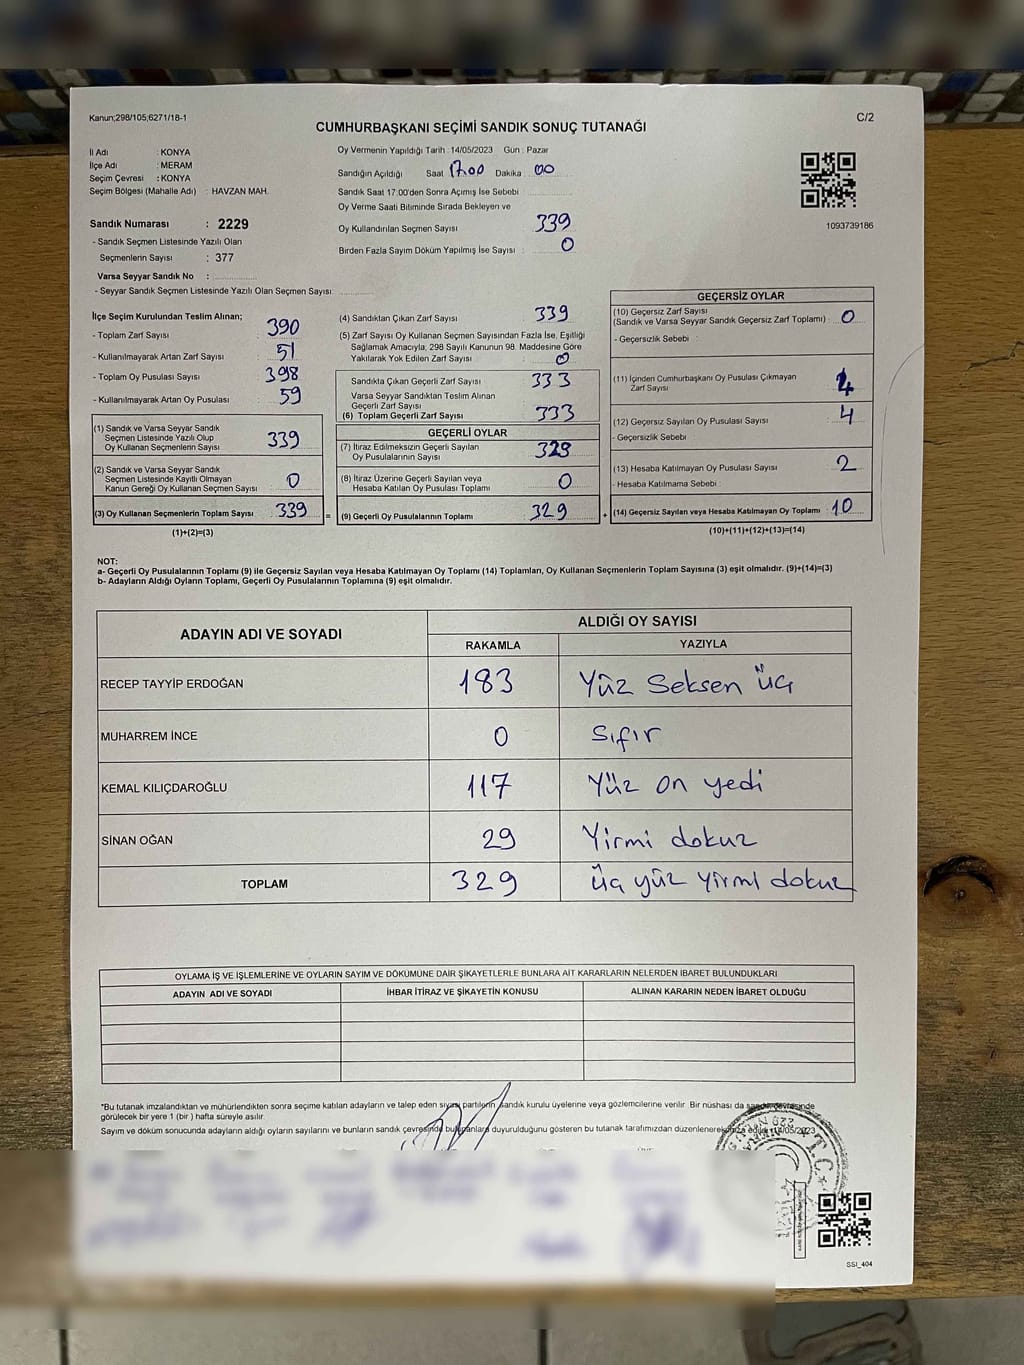 Kanun;298/105;6271/18-1
C/2
CUMHURBAŞKANI SEÇİMİ SANDIK SONUÇ TUTANAĞI
İl Adı : KONYA
İlçe Adı : MERAM
Seçim Çevresi : KONYA
Seçim Bölgesi (Mahalle Adı) : HAVZAN MAH.
Sandık Numarası : 2229
- Sandık Seçmen Listesinde Yazılı Olan
Seçmenlerin Sayısı : 377
Varsa Seyyar Sandık No :
- Seyyar Sandık Seçmen Listesinde Yazılı Olan Seçmen Sayısı:
Oy Vermenin Yapıldığı Tarih : 14/05/2023 Gün : Pazar
Sandığın Açıldığı Saat 17:00 Dakika 00
Sandık Saat 17:00'den Sonra Açımış İse Sebebi
Oy Verme Saati Bitiminde Sırada Bekleyen ve
Oy Kullandırılan Seçmen Sayısı : 339
Birden Fazla Sayım Döküm Yapılmış İse Sayısı : 0
1093739186
İlçe Seçim Kurulundan Teslim Alınan;
- Toplam Zarf Sayısı : 390
- Kullanılmayarak Artan Zarf Sayısı : 51
- Toplam Oy Pusulası Sayısı : 398
- Kullanılmayarak Artan Oy Pusulası : 59
(1) Sandık ve Varsa Seyyar Sandık
Seçmen Listesinde Yazılı Olup
Oy Kullanan Seçmenlerin Sayısı 339
(2) Sandık ve Varsa Seyyar Sandık
Seçmen Listesinde Kayıtlı Olmayan
Kanun Gereği Oy Kullanan Seçmen Sayısı 0
(3) Oy Kullanan Seçmenlerin Toplam Sayısı 339
(1)+(2)=(3)
(4) Sandıktan Çıkan Zarf Sayısı 339
(5) Zarf Sayısı Oy Kullanan Seçmen Sayısından Fazla İse, Eşitliği
Sağlamak Amacıyla, 298 Sayılı Kanunun 98. Maddesine Göre
Yakılarak Yok Edilen Zarf Sayısı 0
Sandıkta Çıkan Geçerli Zarf Sayısı 333
Varsa Seyyar Sandıktan Teslim Alınan
Geçerli Zarf Sayısı
(6) Toplam Geçerli Zarf Sayısı 333
GEÇERLİ OYLAR
(7) İtiraz Edilmeksizin Geçerli Sayılan
Oy Pusulalarının Sayısı 329
(8) İtiraz Üzerine Geçerli Sayılan veya
Hesaba Katılan Oy Pusulası Toplamı 0
= (9) Geçerli Oy Pusulalarının Toplamı 329 +
GEÇERSİZ OYLAR
(10) Geçersiz Zarf Sayısı
(Sandık ve Varsa Seyyar Sandık Geçersiz Zarf Toplamı) : 0
- Geçersizlik Sebebi :
(11) İçinden Cumhurbaşkanı Oy Pusulası Çıkmayan
Zarf Sayısı 4
(12) Geçersiz Sayılan Oy Pusulası Sayısı 4
- Geçersizlik Sebebi
(13) Hesaba Katılmayan Oy Pusulası Sayısı 2
- Hesaba Katılmama Sebebi :
(14) Geçersiz Sayılan veya Hesaba Katılmayan Oy Toplamı : 10
(10)+(11)+(12)+(13)=(14)
NOT:
a- Geçerli Oy Pusulalarının Toplamı (9) ile Geçersiz Sayılan veya Hesaba Katılmayan Oy Toplamı (14) Toplamları, Oy Kullanan Seçmenlerin Toplam Sayısına (3) eşit olmalıdır. (9)+(14)=(3)
b- Adayların Aldığı Oyların Toplamı, Geçerli Oy Pusulalarının Toplamına (9) eşit olmalıdır.
ADAYIN ADI VE SOYADI
ALDIĞI OY SAYISI
RAKAMLA YAZIYLA
RECEP TAYYİP ERDOĞAN 183 Yüz Seksen üç
MUHARREM İNCE 0 Sıfır
KEMAL KILIÇDAROĞLU 117 Yüz on yedi
SİNAN OĞAN 29 Yirmi dokuz
TOPLAM 329 üç yüz Yirmi dokuz
OYLAMA İŞ VE İŞLEMLERİNE VE OYLARIN SAYIM VE DÖKÜMÜNE DAİR ŞİKAYETLERLE BUNLARA AİT KARARLARIN NELERDEN İBARET BULUNDUKLARI
ADAYIN ADI VE SOYADI İHBAR İTİRAZ VE ŞİKAYETİN KONUSU ALINAN KARARIN NEDEN İBARET OLDUĞU
*Bu tutanak imzalandıktan ve mühürlendikten sonra seçime katılan adayların ve talep eden siyasi partilerin sandık kurulu üyelerine veya gözlemcilerine verilir. Bir nüshası da sandık çevresinde
görülecek bir yere 1 (bir) hafta süreyle asılır.
Sayım ve döküm sonucunda adayların aldığı oyların sayılarını ve bunların sandık çevresinde bulunanlara duyurulduğunu gösteren bu tutanak tarafımızdan düzenlenerek imza edildi 14/05/2023
T.C.
SSI_404